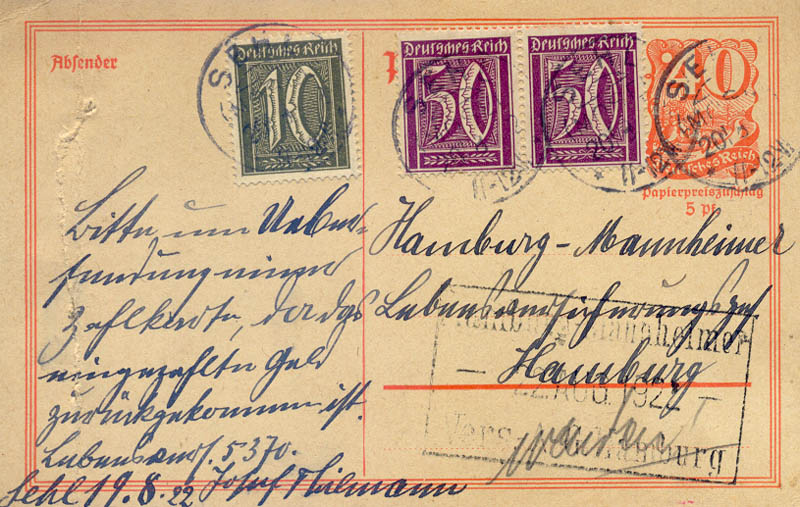 Absender
Deutsches Reich
10
Deutsches Reich
50
Deutsches Reich
50
40
Deutsches Reich
Papierpreiszuschlag
5 Pf.
SEHL
20.8
11-12V.
Bitte um Ueber-
sendung einer
Zahlkarte, da das
eingezahlte Geld
zurückgekommen ist.
Lebensvers. 5370.
Sehl 19.8.22 Josef Thilmann
Hamburg-Mannheimer
Lebensversicherungsges.
Hamburg
Hamburg-Mannheimer
22. AUG. 1922
Vers. Hamburg